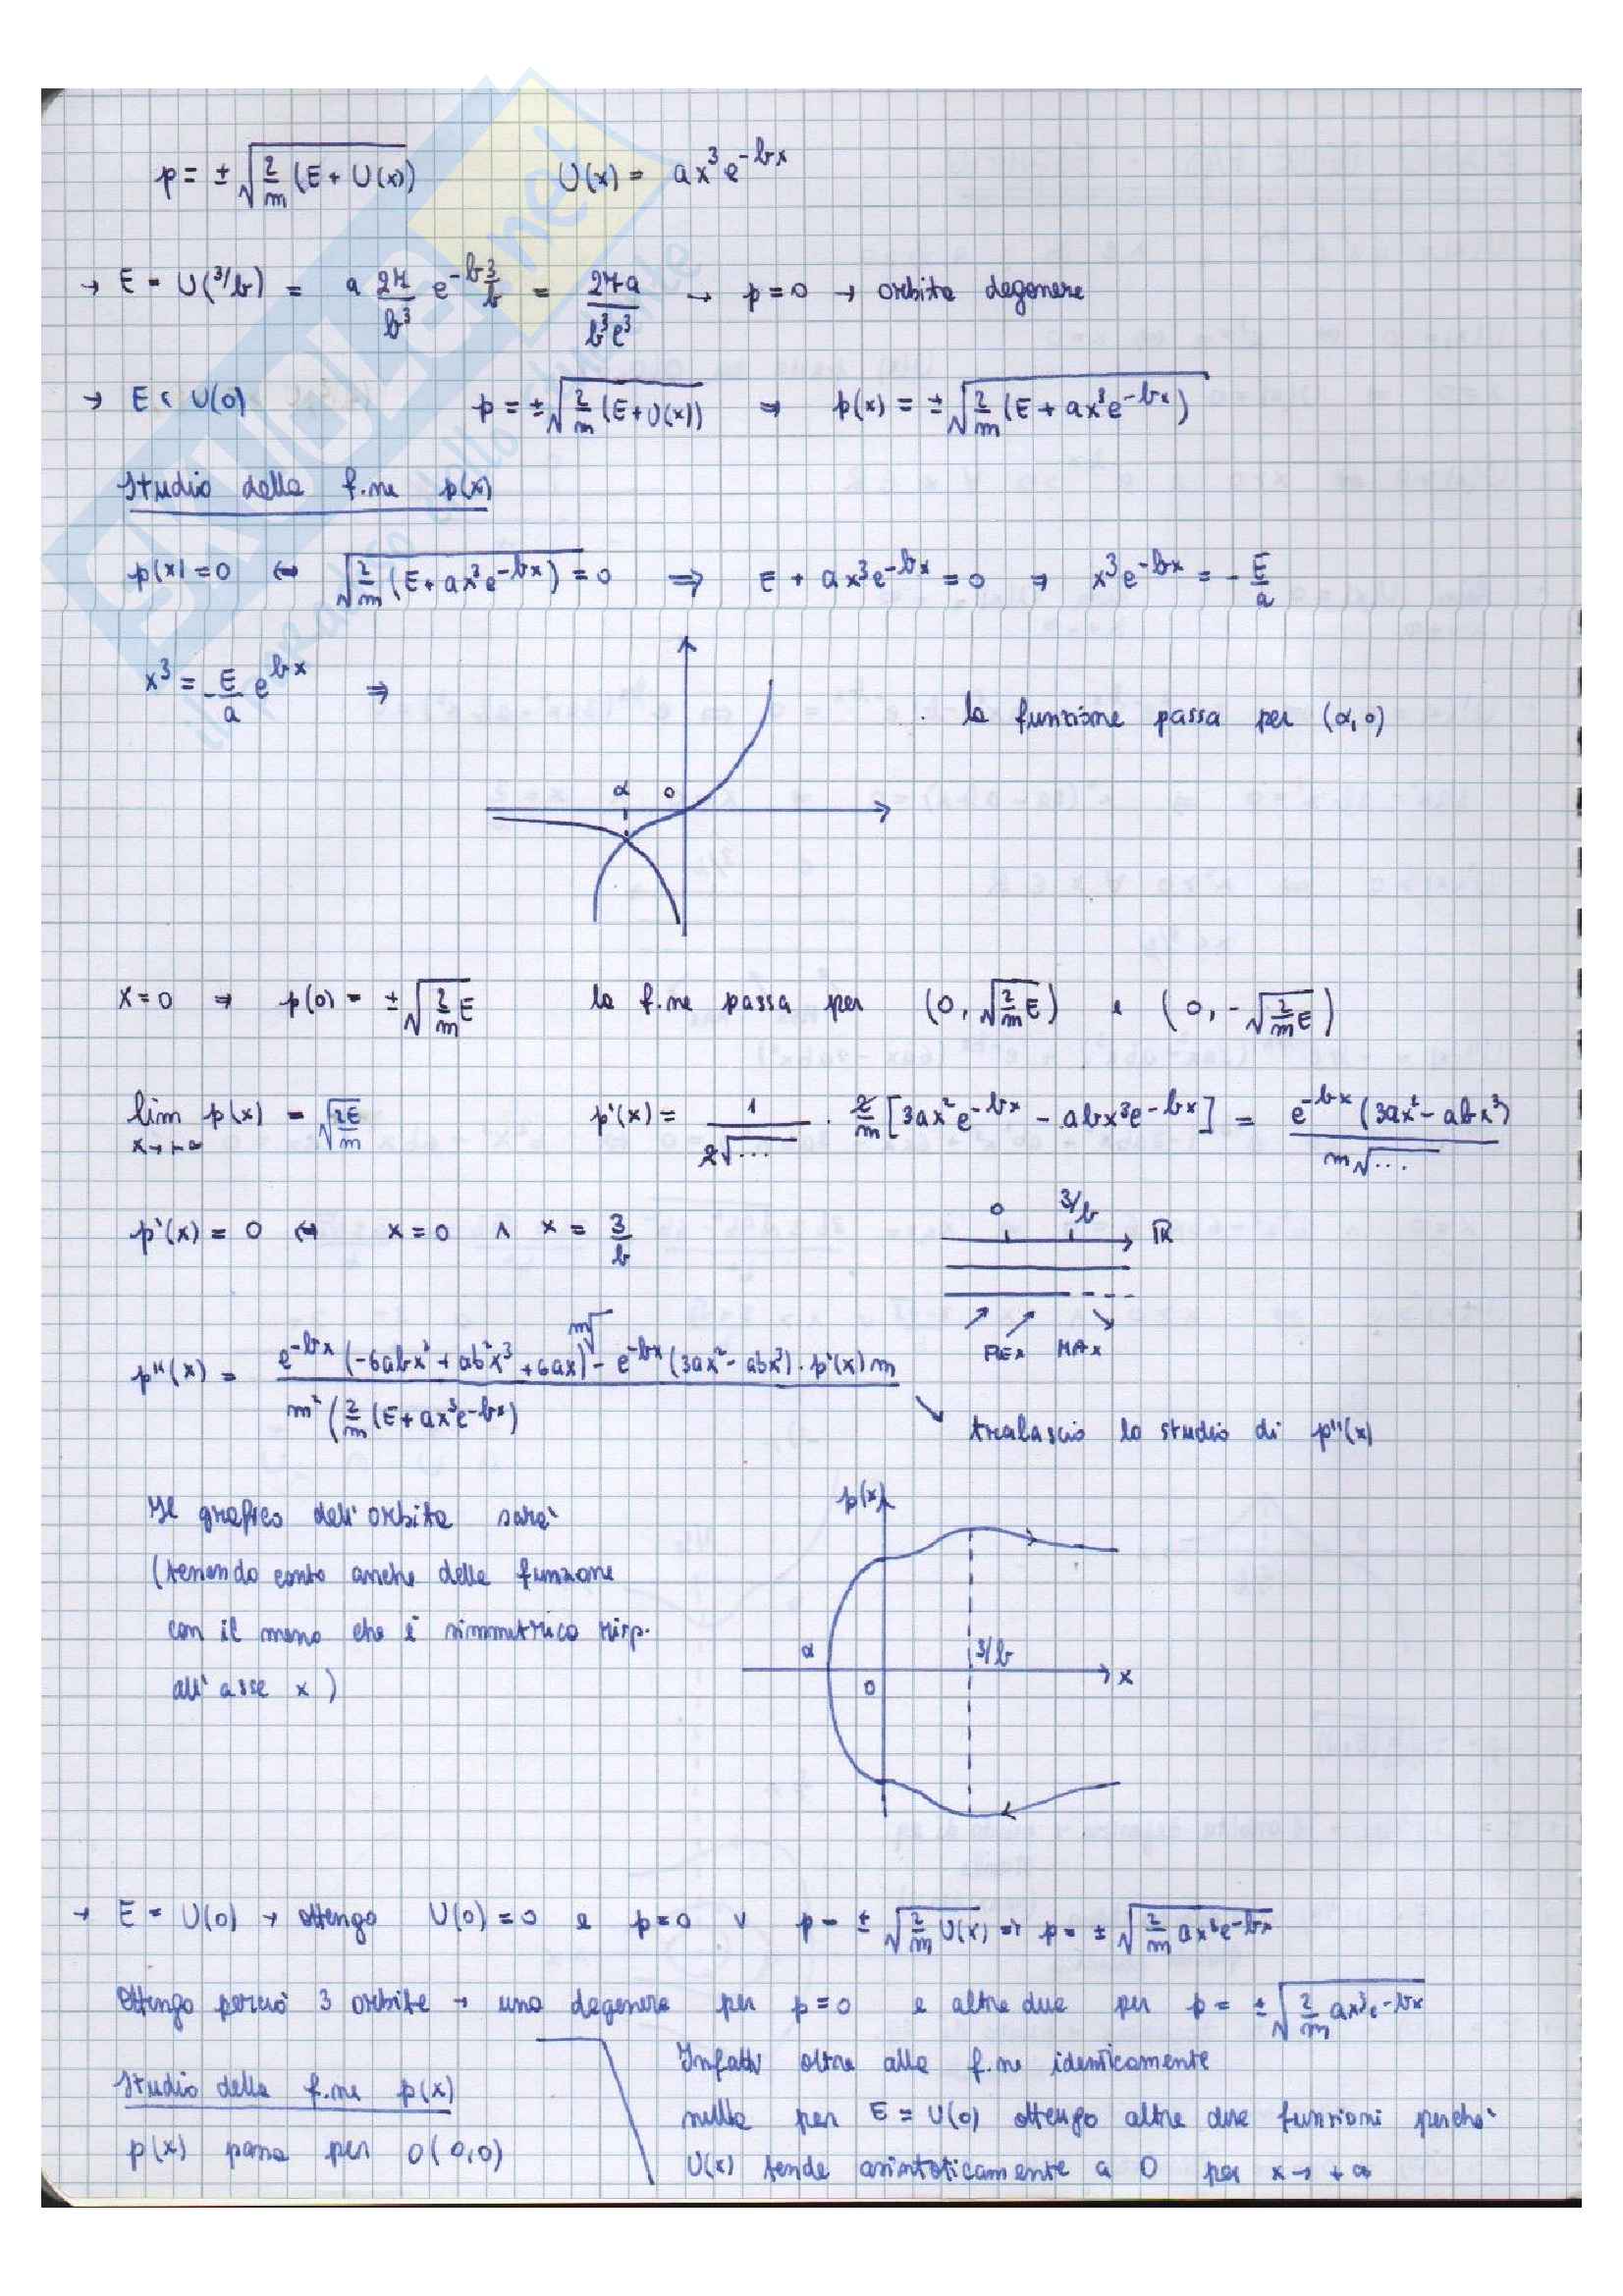 p = ± √(2/m (E + U(x))) U(x) = ax³e^(-bx)
→ E = U(3/b) = a 27/b³ e^(-b 3/b) = 27a/(b³e³) → p=0 → orbita degenere
→ E < U(0) p = ± √(2/m (E+U(x))) ⇒ p(x) = ± √(2/m (E + ax³e^(-bx)))
Studio della f.ne p(x)
p(x)=0 ⇔ √(2/m (E+ax³e^(-bx))) = 0 ⇒ E + ax³e^(-bx) = 0 ⇒ x³e^(-bx) = - E/a
x³ = - E/a e^(bx) ⇒
α 0
la funzione passa per (α,0)
x=0 ⇒ p(0) = ± √(2/m E) la f.ne passa per (0, √(2/m E)) e (0, -√(2/m E))
lim x→+∞ p(x) = √(2E/m) p'(x) = 1/(2√...) · 2/m [3ax²e^(-bx) - abx³e^(-bx)] = e^(-bx)(3ax² - abx³)/(m√...)
p'(x) = 0 ⇔ x=0 ∧ x = 3/b
0 3/b ℝ
FLEX MAX
p''(x) = (e^(-bx)(-6abx² + ab²x³ + 6ax) m√ - e^(-bx)(3ax² - abx³) · p'(x) m)/(m² (2/m (E+ax³e^(-bx))
tralascio lo studio di p''(x)
Il grafico dell'orbita sarà
(tenendo conto anche della funzione
con il meno che è simmetrica risp.
all'asse x)
p(x)
α 0 3/b x
→ E = U(0) → ottengo U(0)=0 e p=0 ∨ p = ± √(2/m U(x)) ⇒ p = ± √(2/m ax³e^(-bx))
Ottengo perciò 3 orbite → una degenere per p=0 e altre due per p = ± √(2/m ax³e^(-bx))
Infatti oltre alla f.ne identicamente
nulla per E = U(0) ottengo altre due funzioni perché
U(x) tende asintoticamente a 0 per x → +∞
Studio della f.ne p(x)
p(x) passa per O(0,0)
SKUOLA.net